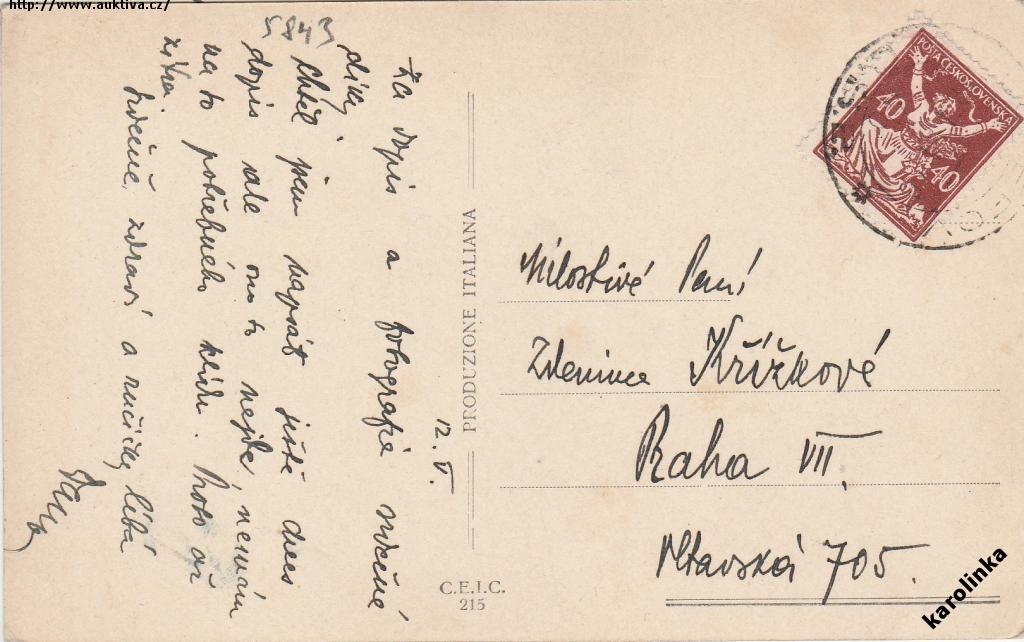 http://www.auktiva.cz/
5843
12. V.
Za dopis a fotografie srdečné
díky.
Chtěl jsem napsat ještě dnes
dopis ale ono to nejde, nemám
na to potřebného klidu. Proto až
zítra.
Srdečně zdraví a ručičky líbá
POŠTA ČESKOSLOVENSKÁ
40
40
PRODUZIONE ITALIANA
C.E.I.C.
215
Milostivé Paní
Zdenince Křížkové
Praha VII.
Vltavská 705.
karolinka